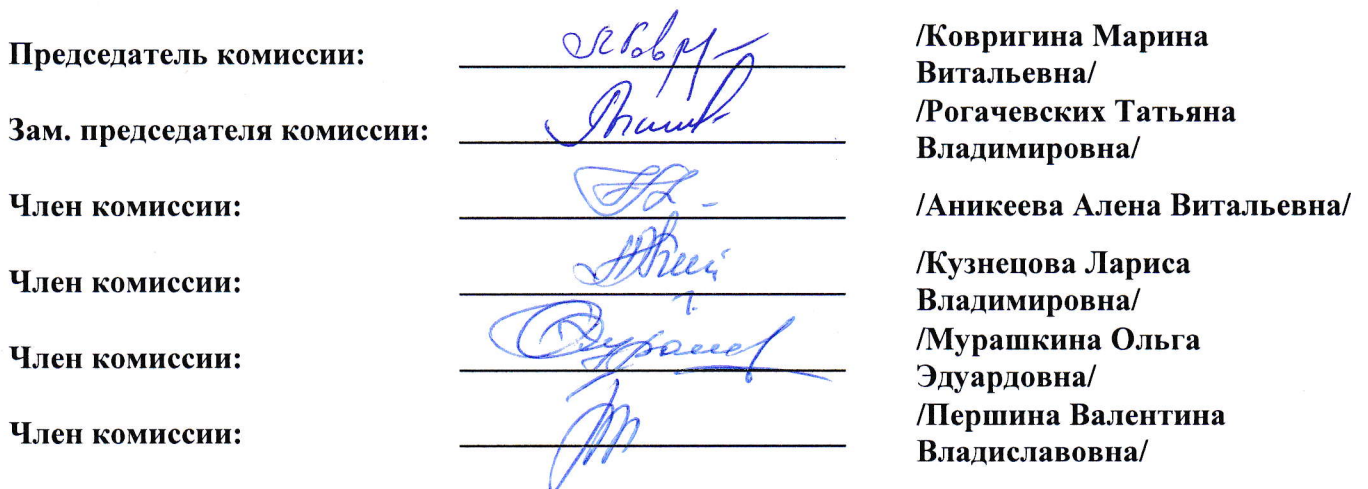 Председатель комиссии: /Ковригина Марина
Витальевна/
Зам. председателя комиссии: /Рогачевских Татьяна
Владимировна/
Член комиссии: /Аникеева Алена Витальевна/
Член комиссии: /Кузнецова Лариса
Владимировна/
Член комиссии: /Мурашкина Ольга
Эдуардовна/
Член комиссии: /Першина Валентина
Владиславовна/